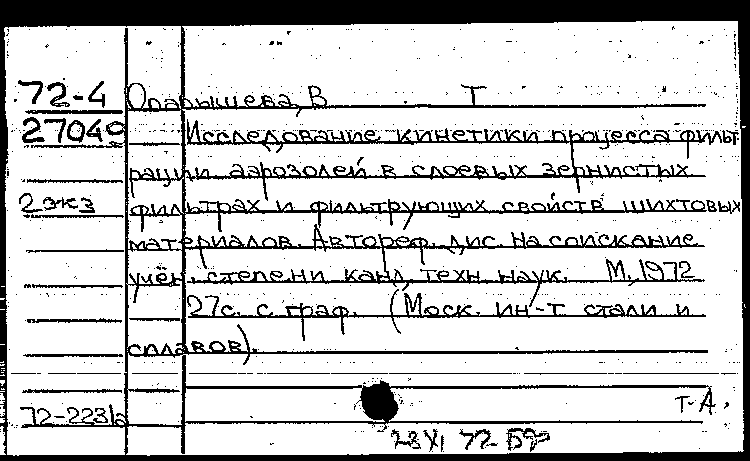 72-4 Опарышева, В Т
27049 Исследование кинетики процесса фильт
рации аэрозолей в слоевых зернистых
2 экз фильтрах и фильтрующих свойств шихтовых
материалов. Автореф. дис. на соискание
учён. степени канд. техн. наук. М., 1972
27с. с граф. (Моск. ин-т стали и
сплавов).
72-2231а
Т-А.
28 XI 72